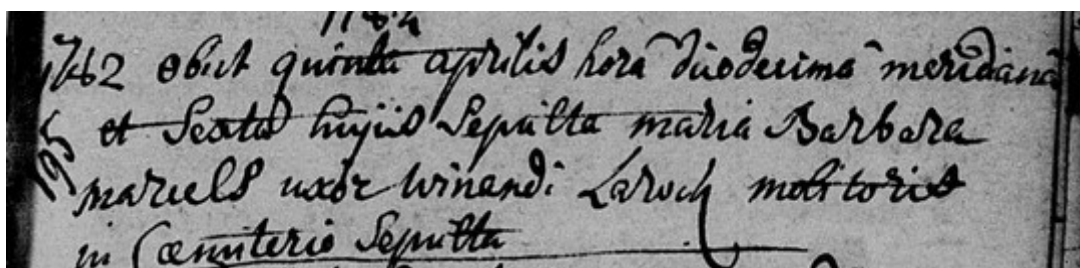 1762 obiit quinta aprilis hora duodecima meridiana
et Sexta hujus Sepulta maria Barbara
marcels uxor winandi Laroch molitoris
in Cœmiterio Sepulta